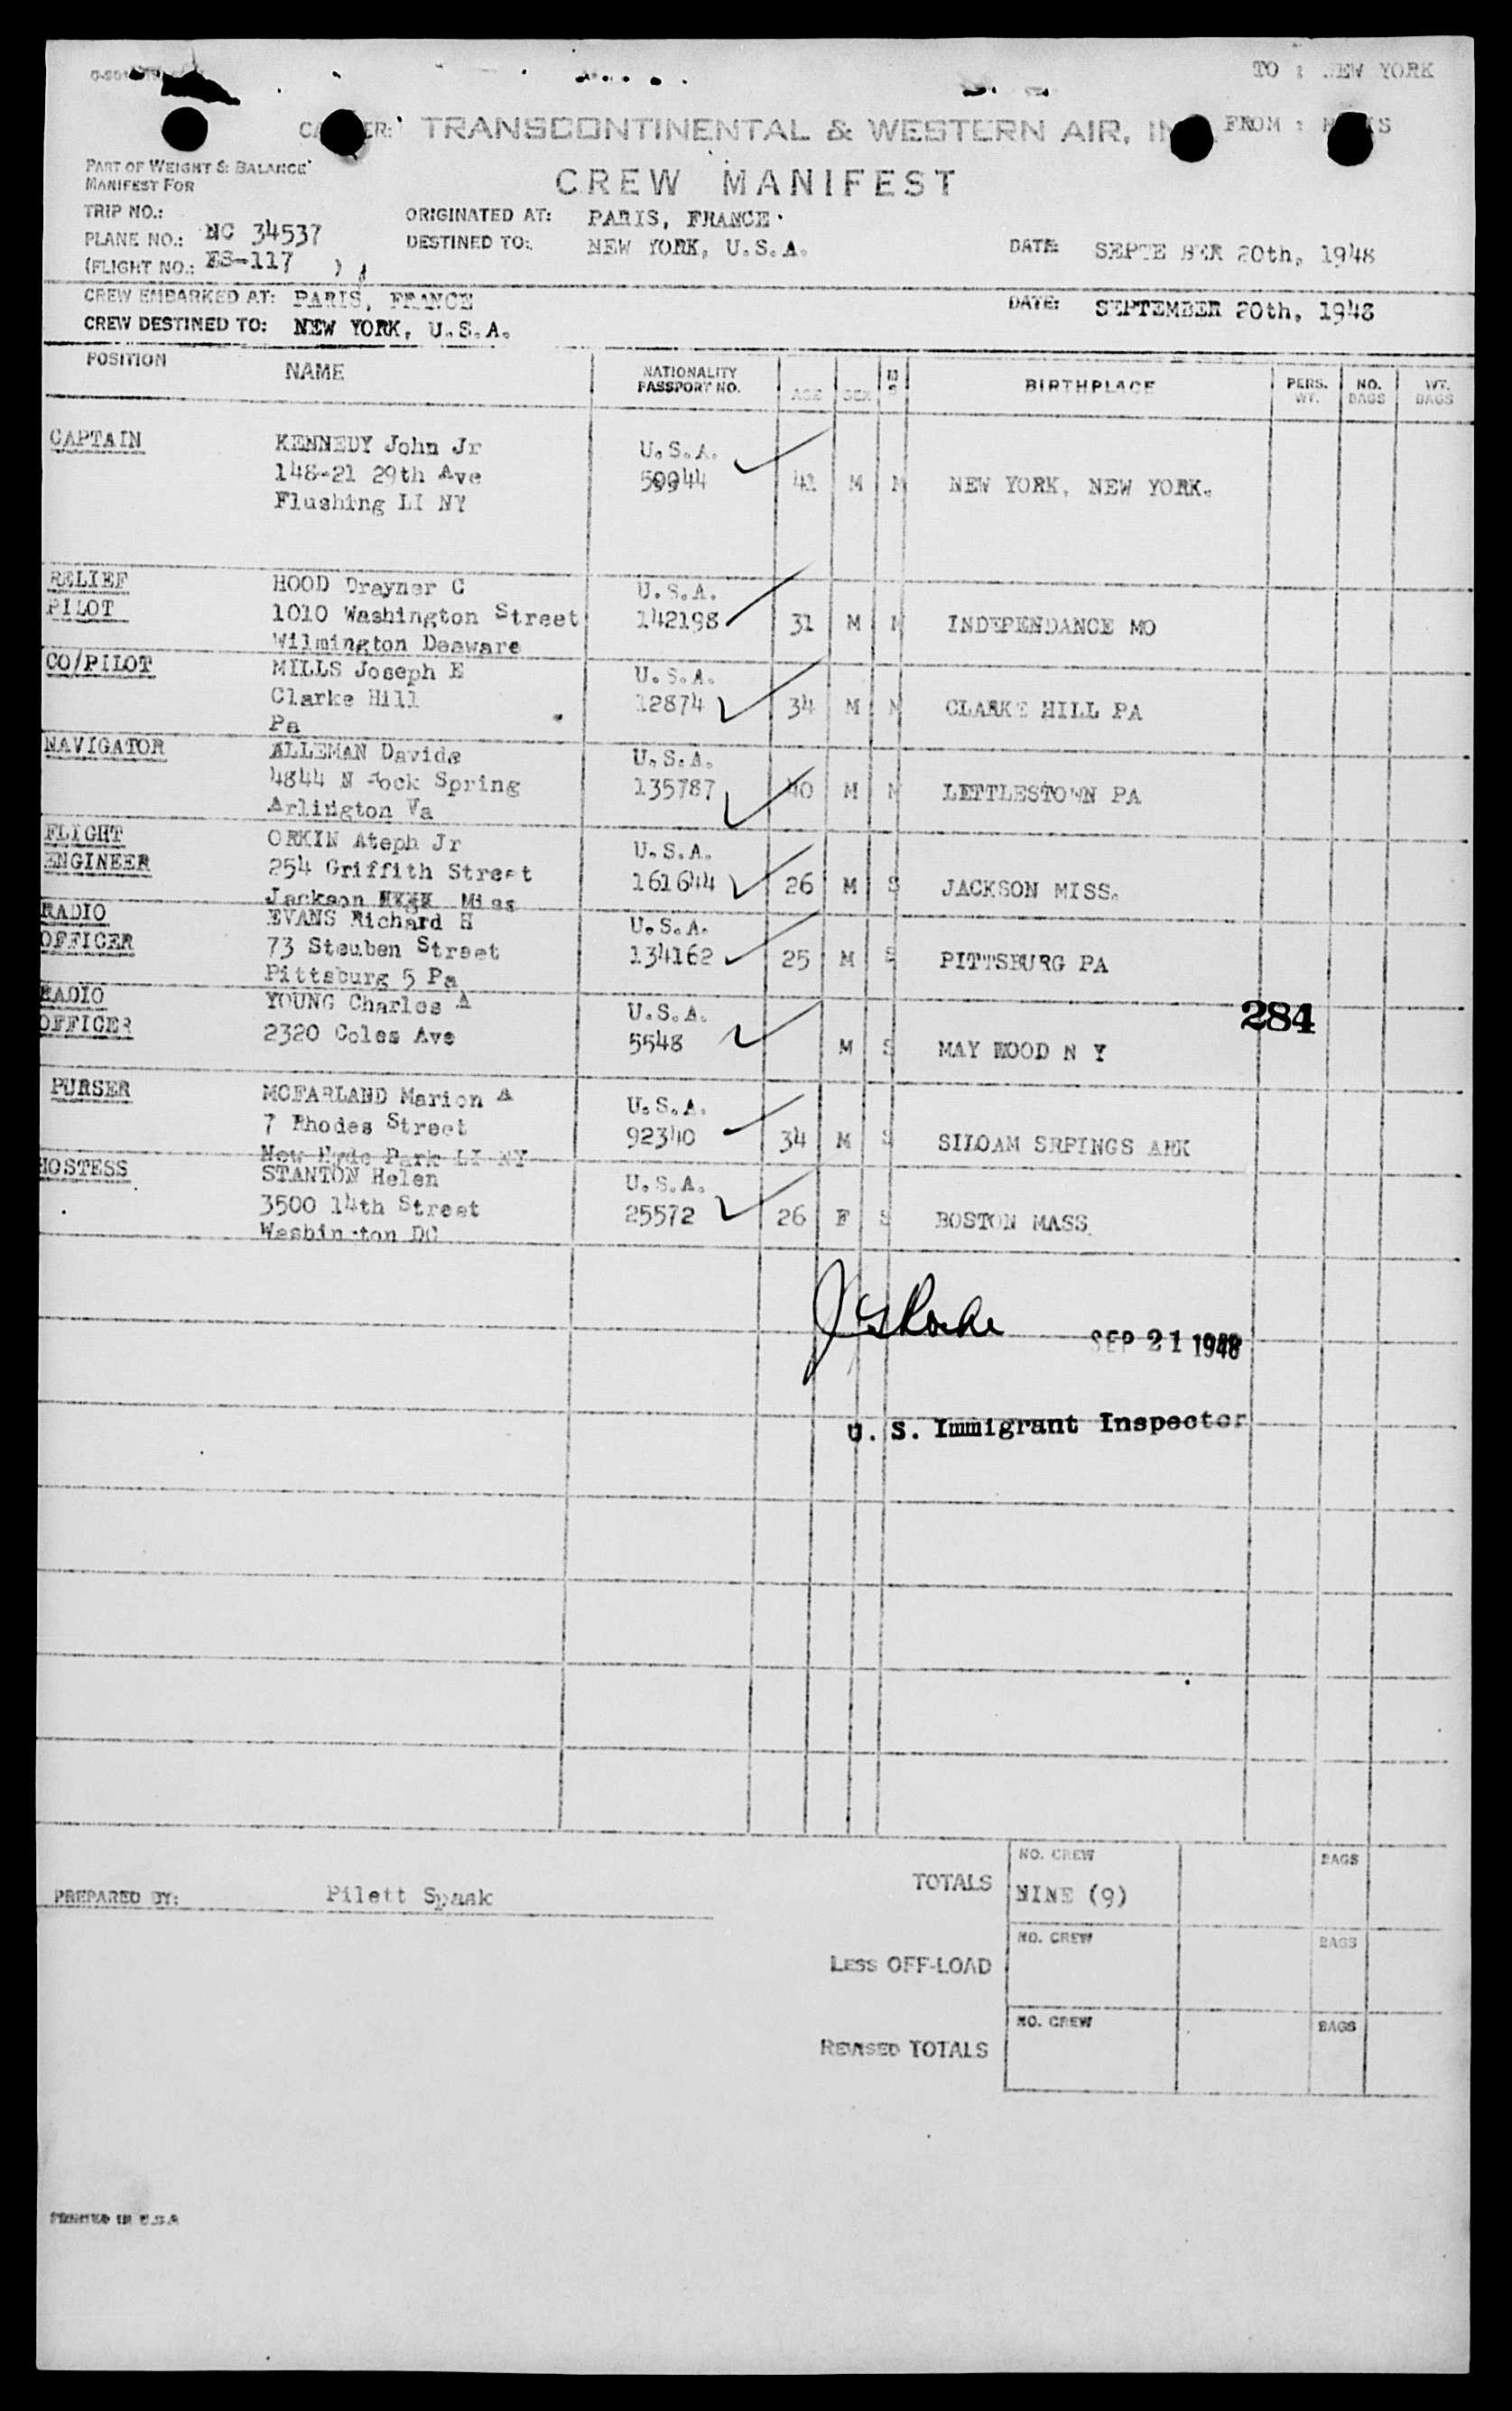 TO : NEW YORK
TRANSCONTINENTAL & WESTERN AIR, IN
FROM :
PART OF WEIGHT & BALANCE
MANIFEST FOR
CREW MANIFEST
TRIP NO.:
ORIGINATED AT: PARIS, FRANCE
PLANE NO.: NC 34537
DESTINED TO: NEW YORK, U.S.A.
DATE: SEPTE BER 20th, 1948
(FLIGHT NO.: ES-117 )
CREW EMBARKED AT: PARIS, FRANCE
DATE: SEPTEMBER 20th, 1948
CREW DESTINED TO: NEW YORK, U.S.A.
POSITION NAME NATIONALITY PASSPORT NO. AGE SEX M S BIRTHPLACE PERS. WT. NO. BAGS WT. BAGS
CAPTAIN KENNEDY John Jr U.S.A.
148-21 29th Ave 59944 41 M M NEW YORK, NEW YORK.
Flushing LI NY
RELIEF HOOD Drayner C U.S.A.
PILOT 1010 Washington Street 142198 31 M M INDEPENDANCE MO
Wilmington Deaware
CO/PILOT MILLS Joseph E U.S.A.
Clarke Hill 12874 34 M M CLARKE HILL PA
Pa
NAVIGATOR ALLEMAN Davide U.S.A.
4844 N Rock Spring 135787 40 M M LETTLESTOWN PA
Arlington Va
FLIGHT ORKIN Ateph Jr U.S.A.
ENGINEER 254 Griffith Street 161644 26 M S JACKSON MISS.
Jackson Miss
RADIO EVANS Richard H U.S.A.
OFFICER 73 Steuben Street 134162 25 M S PITTSBURG PA
Pittsburg 5 Pa
RADIO YOUNG Charles A U.S.A.
284
OFFICER 2320 Coles Ave 5548 M S MAY WOOD N Y
PURSER MCFARLAND Marion A U.S.A.
7 Rhodes Street 92340 34 M S SILOAM SRPINGS ARK
New Hyde Park LI NY
HOSTESS STANTON Helen U.S.A.
3500 14th Street 25572 26 F S BOSTON MASS.
Washington DC
SEP 21 1948
U. S. Immigrant Inspector
NO. CREW BAGS
TOTALS NINE (9)
PREPARED BY: Pilett Spaak
NO. CREW BAGS
LESS OFF-LOAD
NO. CREW BAGS
REVISED TOTALS
PRINTED IN U.S.A